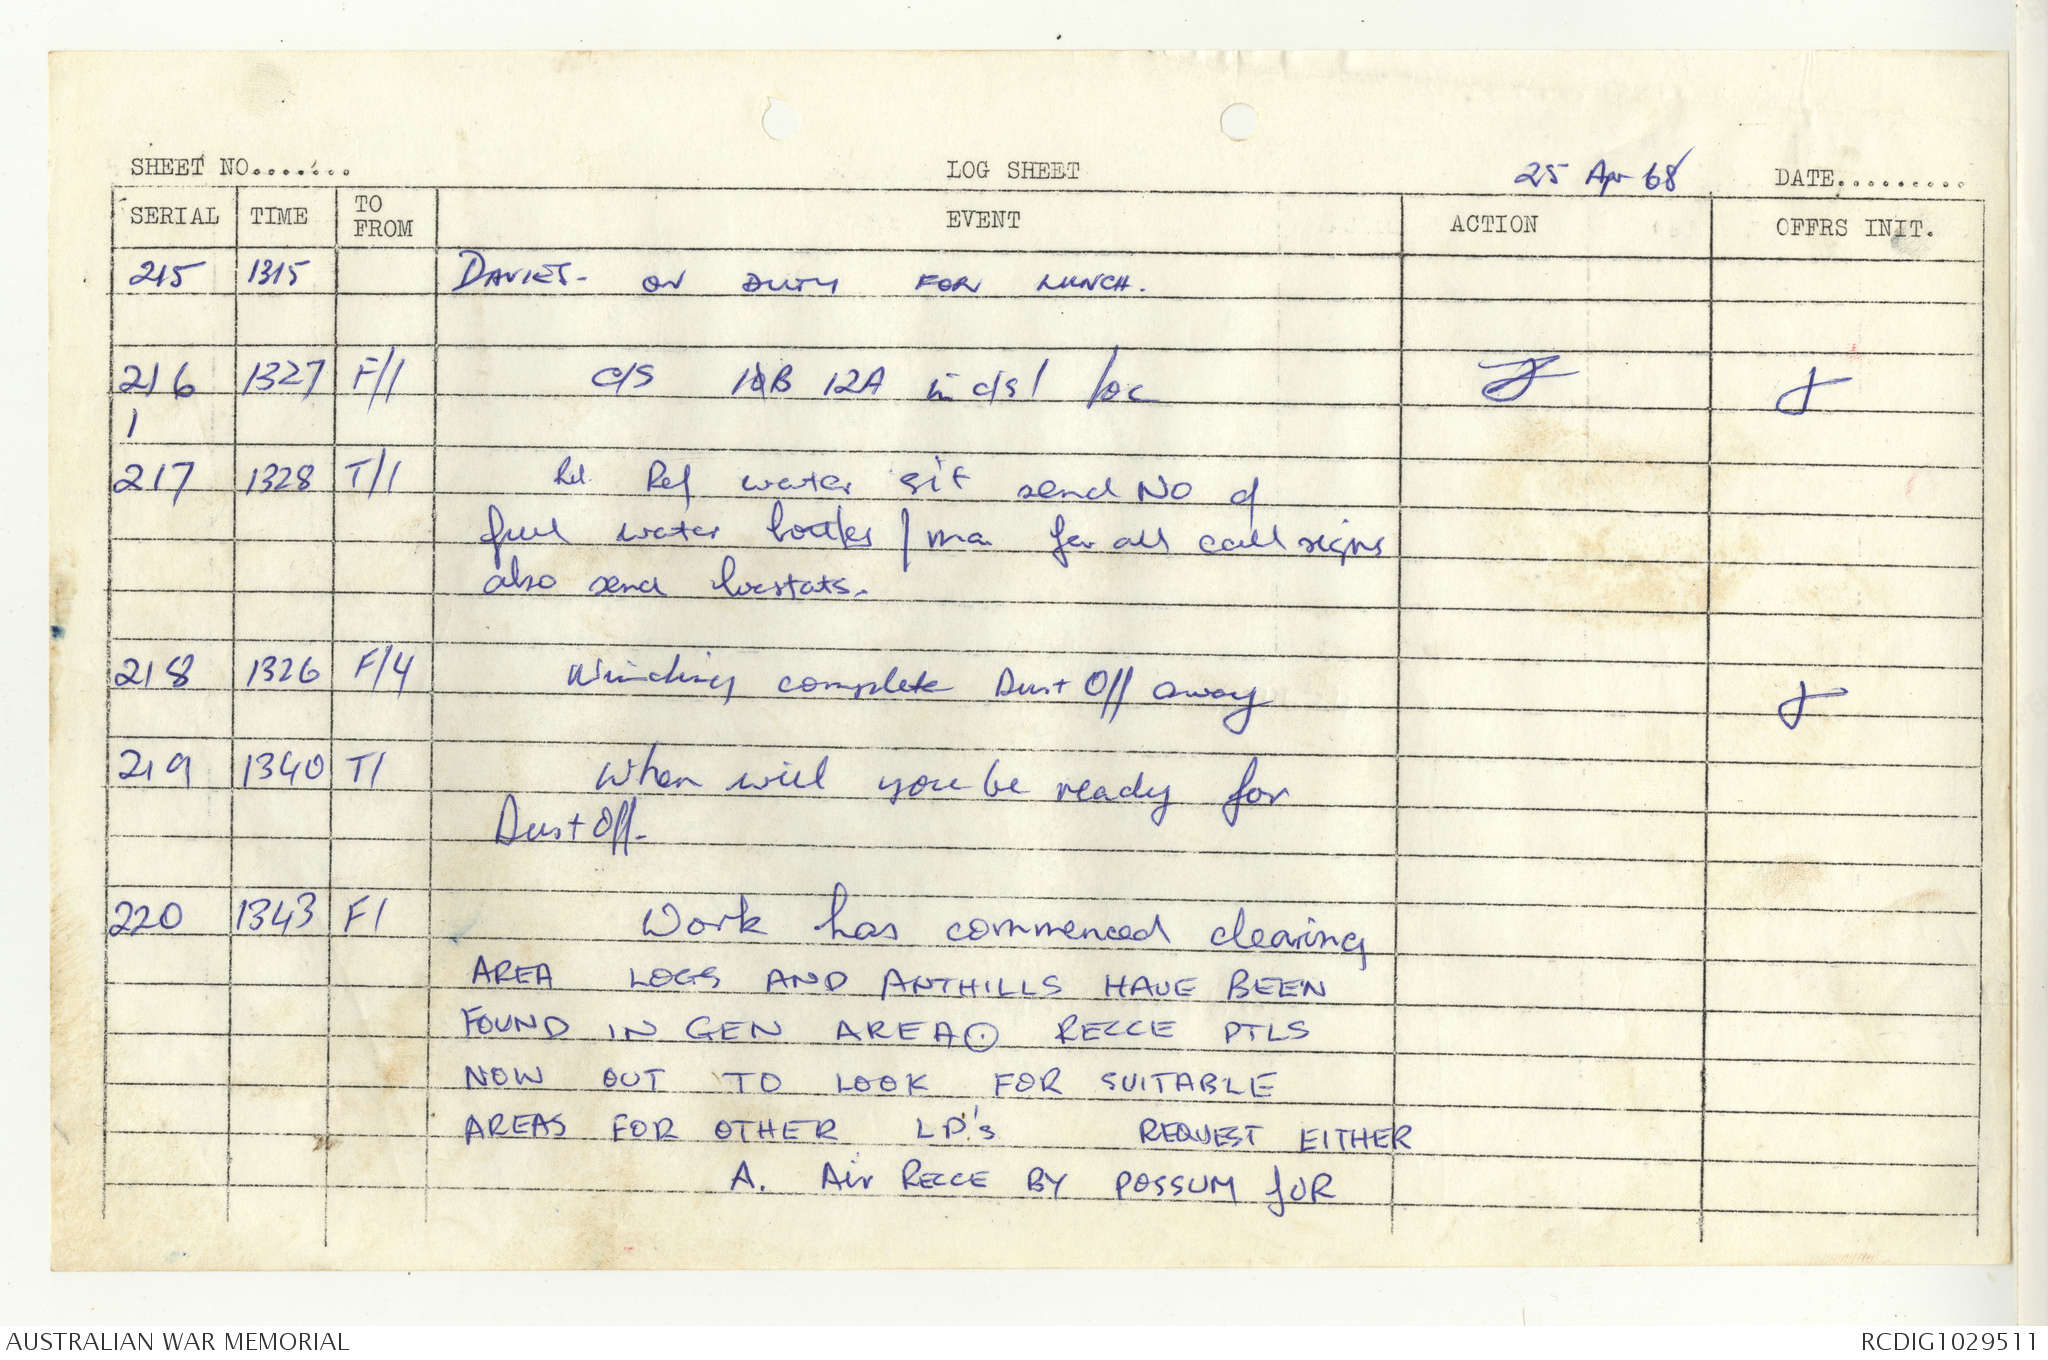 SHEET NO....... LOG SHEET 25 Apr 68 DATE.........
SERIAL TIME TO FROM EVENT ACTION OFFRS INIT.
215 1315 DAVIES - ON DUTY FOR LUNCH.
216 1327 F/1 C/S 12A in c/s 1 loc
1
217 1328 T/1 Ref water sit send No of
full water bottles / man for all call signs
also send locstats.
218 1326 F/4 Winching complete Dust Off away
219 1340 T1 When will you be ready for
Dust Off.
220 1343 F1 Work has commenced clearing
AREA LOGS AND ANTHILLS HAVE BEEN
FOUND IN GEN AREA⊙ RECCE PTLS
NOW OUT TO LOOK FOR SUITABLE
AREAS FOR OTHER LP's REQUEST EITHER
A. Air RECCE BY POSSUM FOR
AUSTRALIAN WAR MEMORIAL RCDIG1029511